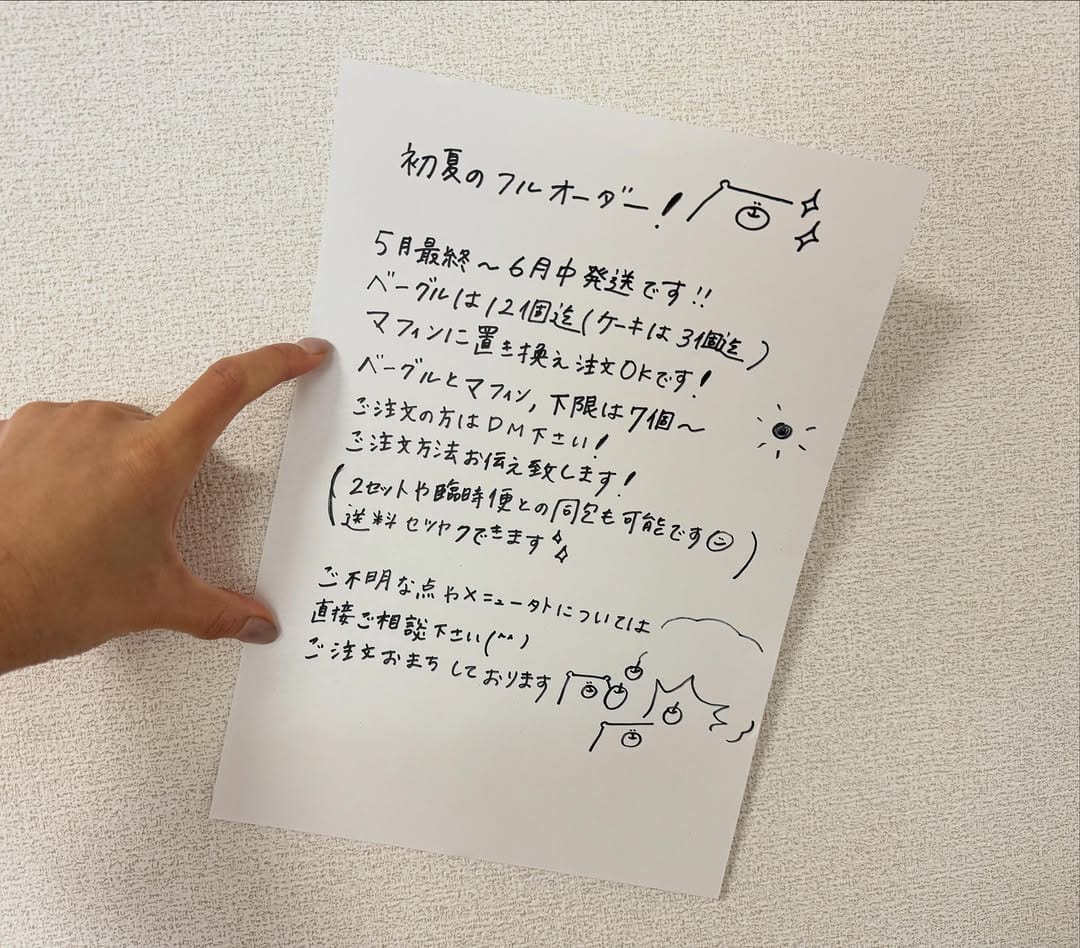 初夏のフルオーダー!
5月最終〜6月中発送です!!
ベーグルは12個迄(ケーキは3個迄)
マフィンに置き換え注文OKです!
ベーグルとマフィン,下限は7個〜
ご注文の方はDM下さい!
ご注文方法お伝え致します!
(2セットや臨時便との同包も可能です
送料セツヤクできます)
ご不明な点やメニュータトについては
直接ご相談下さい(^^)
ご注文おまちしております